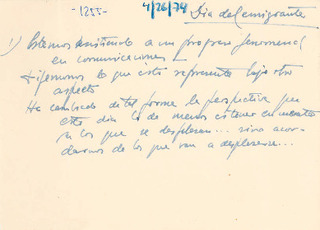 -1255-
4/26/74 Día del emigrante
1) Estamos asistiendo a un progreso fenomenal
en comunicaciones
Fijémonos lo que esto representa bajo otro
aspecto
Ha cambiado de tal forma la perspectiva que
este día lo de menos es tener en cuenta
a los que se desplazan... sino acor-
darnos de los que van a desplazarse...